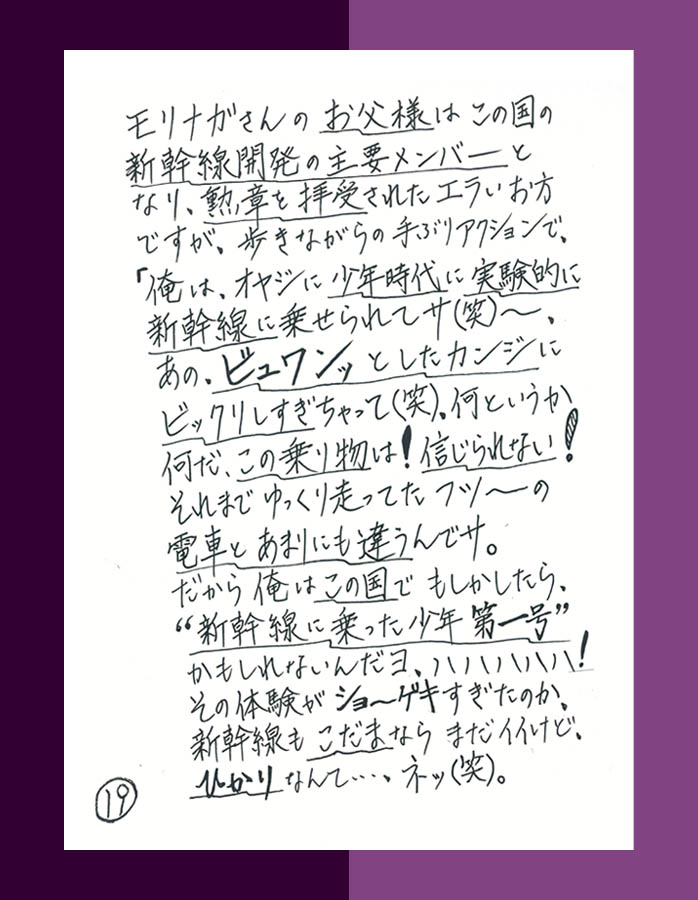 モリナガさんの お父様は この国の
新幹線開発の主要メンバーと
なり、勲章を拝受されたエラいお方
ですが、歩きながらの手ぶりアクションで、
「俺は、オヤジに少年時代に実験的に
新幹線に乗せられてサ(笑)〜、
あの、ビュワンッとしたカンジに
ビックリしすぎちゃって(笑)、何というか
何だ、この乗り物は!信じられない!
それまでゆっくり走ってたフツ〜の
電車とあまりにも違うんでサ。
だから俺はこの国でもしかしたら、
“新幹線に乗った少年第一号”
かもしれないんだヨ、ハハハハハハ!
その体験がショ〜ゲキすぎたのか、
新幹線もこだまならまだイイけど、
ひかりなんて・・・、ネッ(笑)。
19